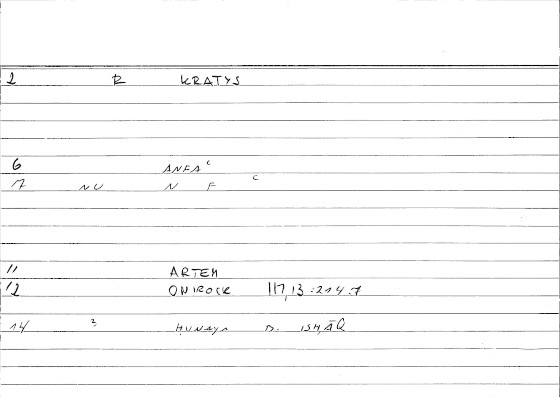 2 R KRATYS
6 ANFAᶜ
7 NU N F ᶜ
11 ARTEM
12 ONIROCR 117,13 :214.7
14 ? ḤUNAYN B. ISḤĀQ